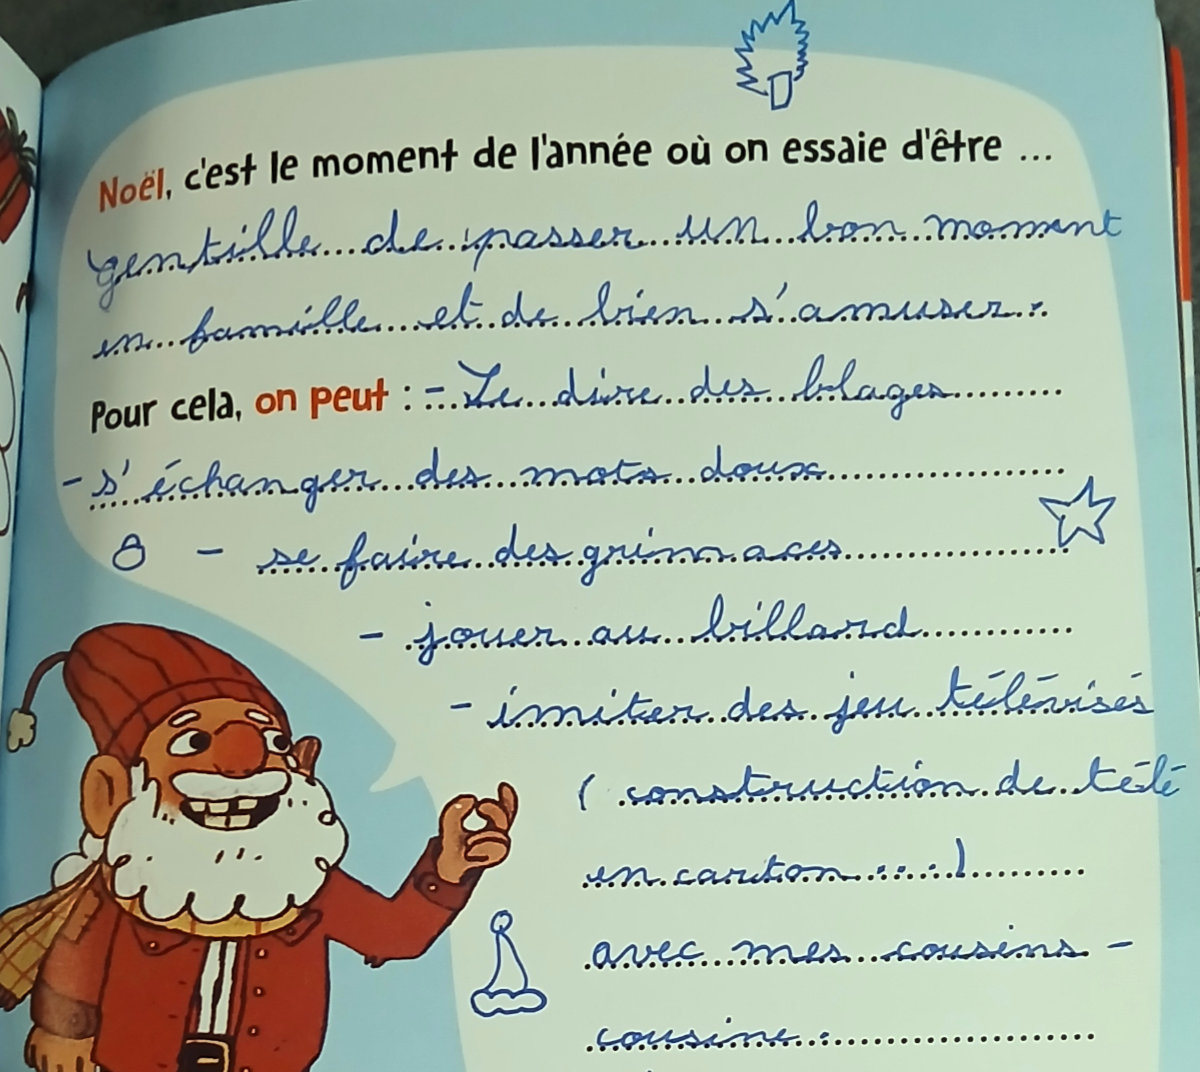 Noël, c'est le moment de l'année où on essaie d'être ...
gentille de passer un bon moment
en famille et de bien s'amuser.
Pour cela, on peut : - Se dire des blages
- s'échanger des mots doux
- se faire des grimaces
- jouer au billard
- imiter des jeu télévisés
( construction de télé
en carton ....)
avec mes cousins -
cousine.